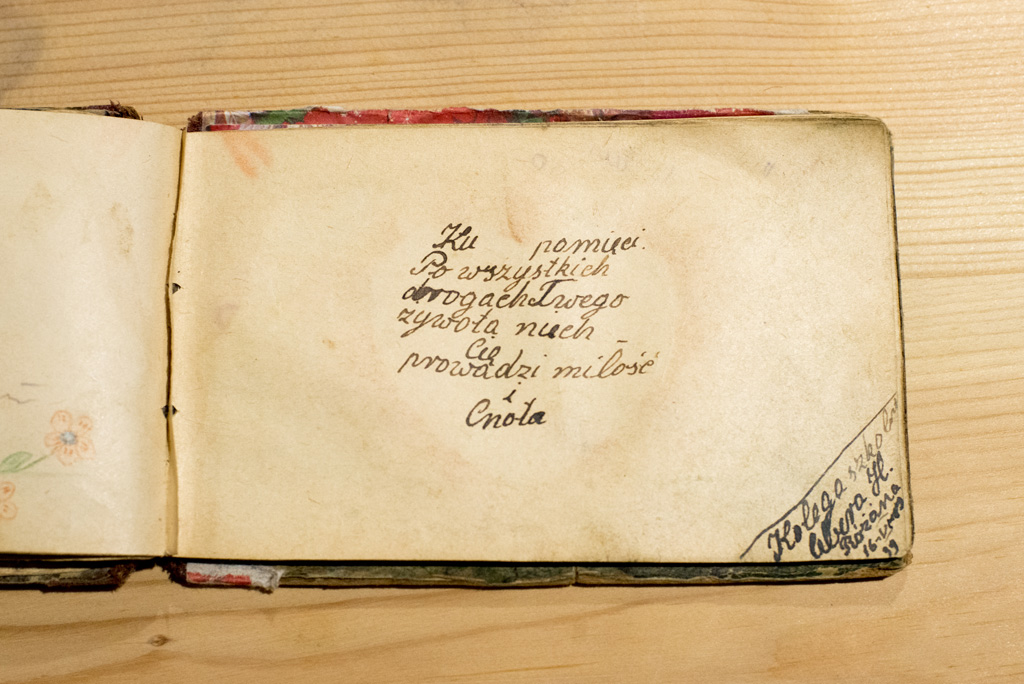 Ku pamięci.
Po wszystkich
drogach Twego
żywota niech
Cię
prowadzi miłość
i
Cnota
Kolega szkolny
H.
Różana